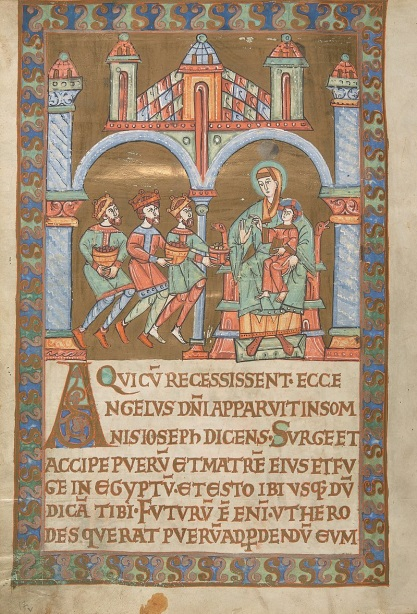 QVI CV̄ RECESSISSENT· ECCE
ANGELUS DN̄I APPARVIT IN SOM
NIS IOSEPH DICENS· SURGE ET
ACCIPE PVERV̄ ET MATRĒ EIVS ET FV
GE IN EGYPTV̄· ET ESTO IBI VSQ DV̄
DICĀ TIBI· FVTVRV̄ Ē ENI· VT HERO
DES QVERAT PVERV̄ AD PDENDV̄ EVM